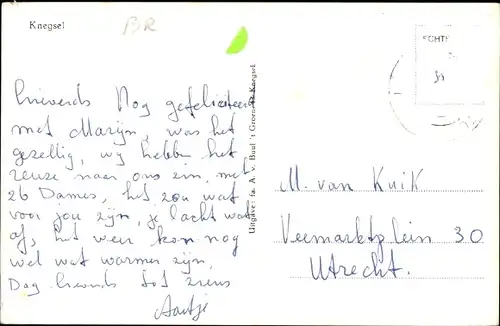 Knegsel
BR
Lieverds Nog gefeliciteerd
met Marijn, was het
gezellig, wy hebben het
reuze naar ons zin, met
26 Dames, het zou wat
voor jou zijn, je lacht wat
af, het weer kon nog
wel wat warmer zijn,
Dag lieverds tot ziens
Aartje
Uitgave: fa. A. v. Buul 't Groen Knegsel
ECHTE
M. van Kuik
Veemarktplein 30
Utrecht.